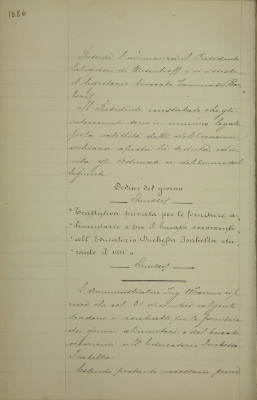 1086
Presiede l'adunanza il Presidente
Salvadori di Wiesenhoff e vi assiste
il Segretario Avvocato
Il Presidente constatato che gli
intervenuti sono in numero legale
per la validità delle deliberazioni
dichiara aperta la seduta ed in-
vita gli Adunati a deliberare sul
seguente
Ordine del giorno
Omissis
"Trattativa privata per le forniture a-
limentarie e per l' occorrenti
all'Educatorio Duchessa Isabella du-
rante il
Omissis
L'Amministratore Ing. Maximo rife-
risce che col 31 dicembre volgente
scadono i contratti per la fornitura
dei generi alimentari e del
occorrenti all'Educatorio Duchessa
Isabella.
Essendo pertanto necessario provv